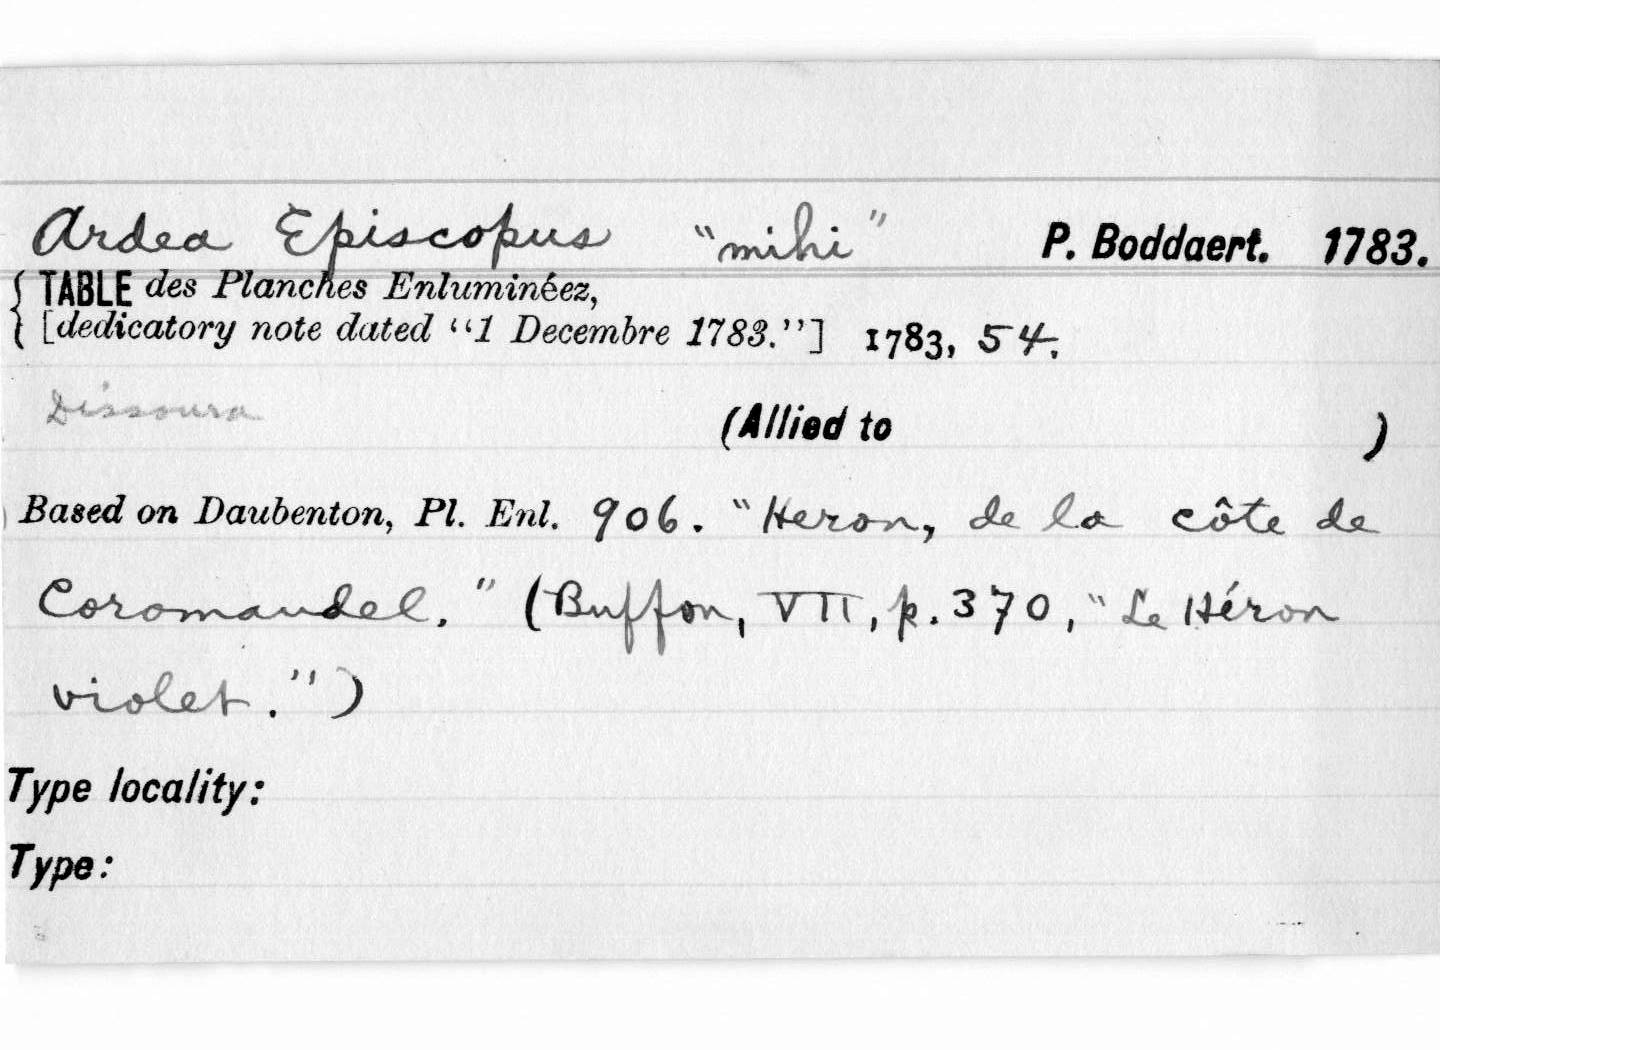 Ardea Episcopus "mihi" P. Boddaert. 1783.
TABLE des Planches Enluminéez,
[dedicatory note dated "1 Decembre 1783."] 1783, 54.
Dissoura (Allied to )
Based on Daubenton, Pl. Enl. 906. "Heron, de la côte de
Coromandel." (Buffon, VII, p. 370, "Le Héron
violet.")
Type locality:
Type: